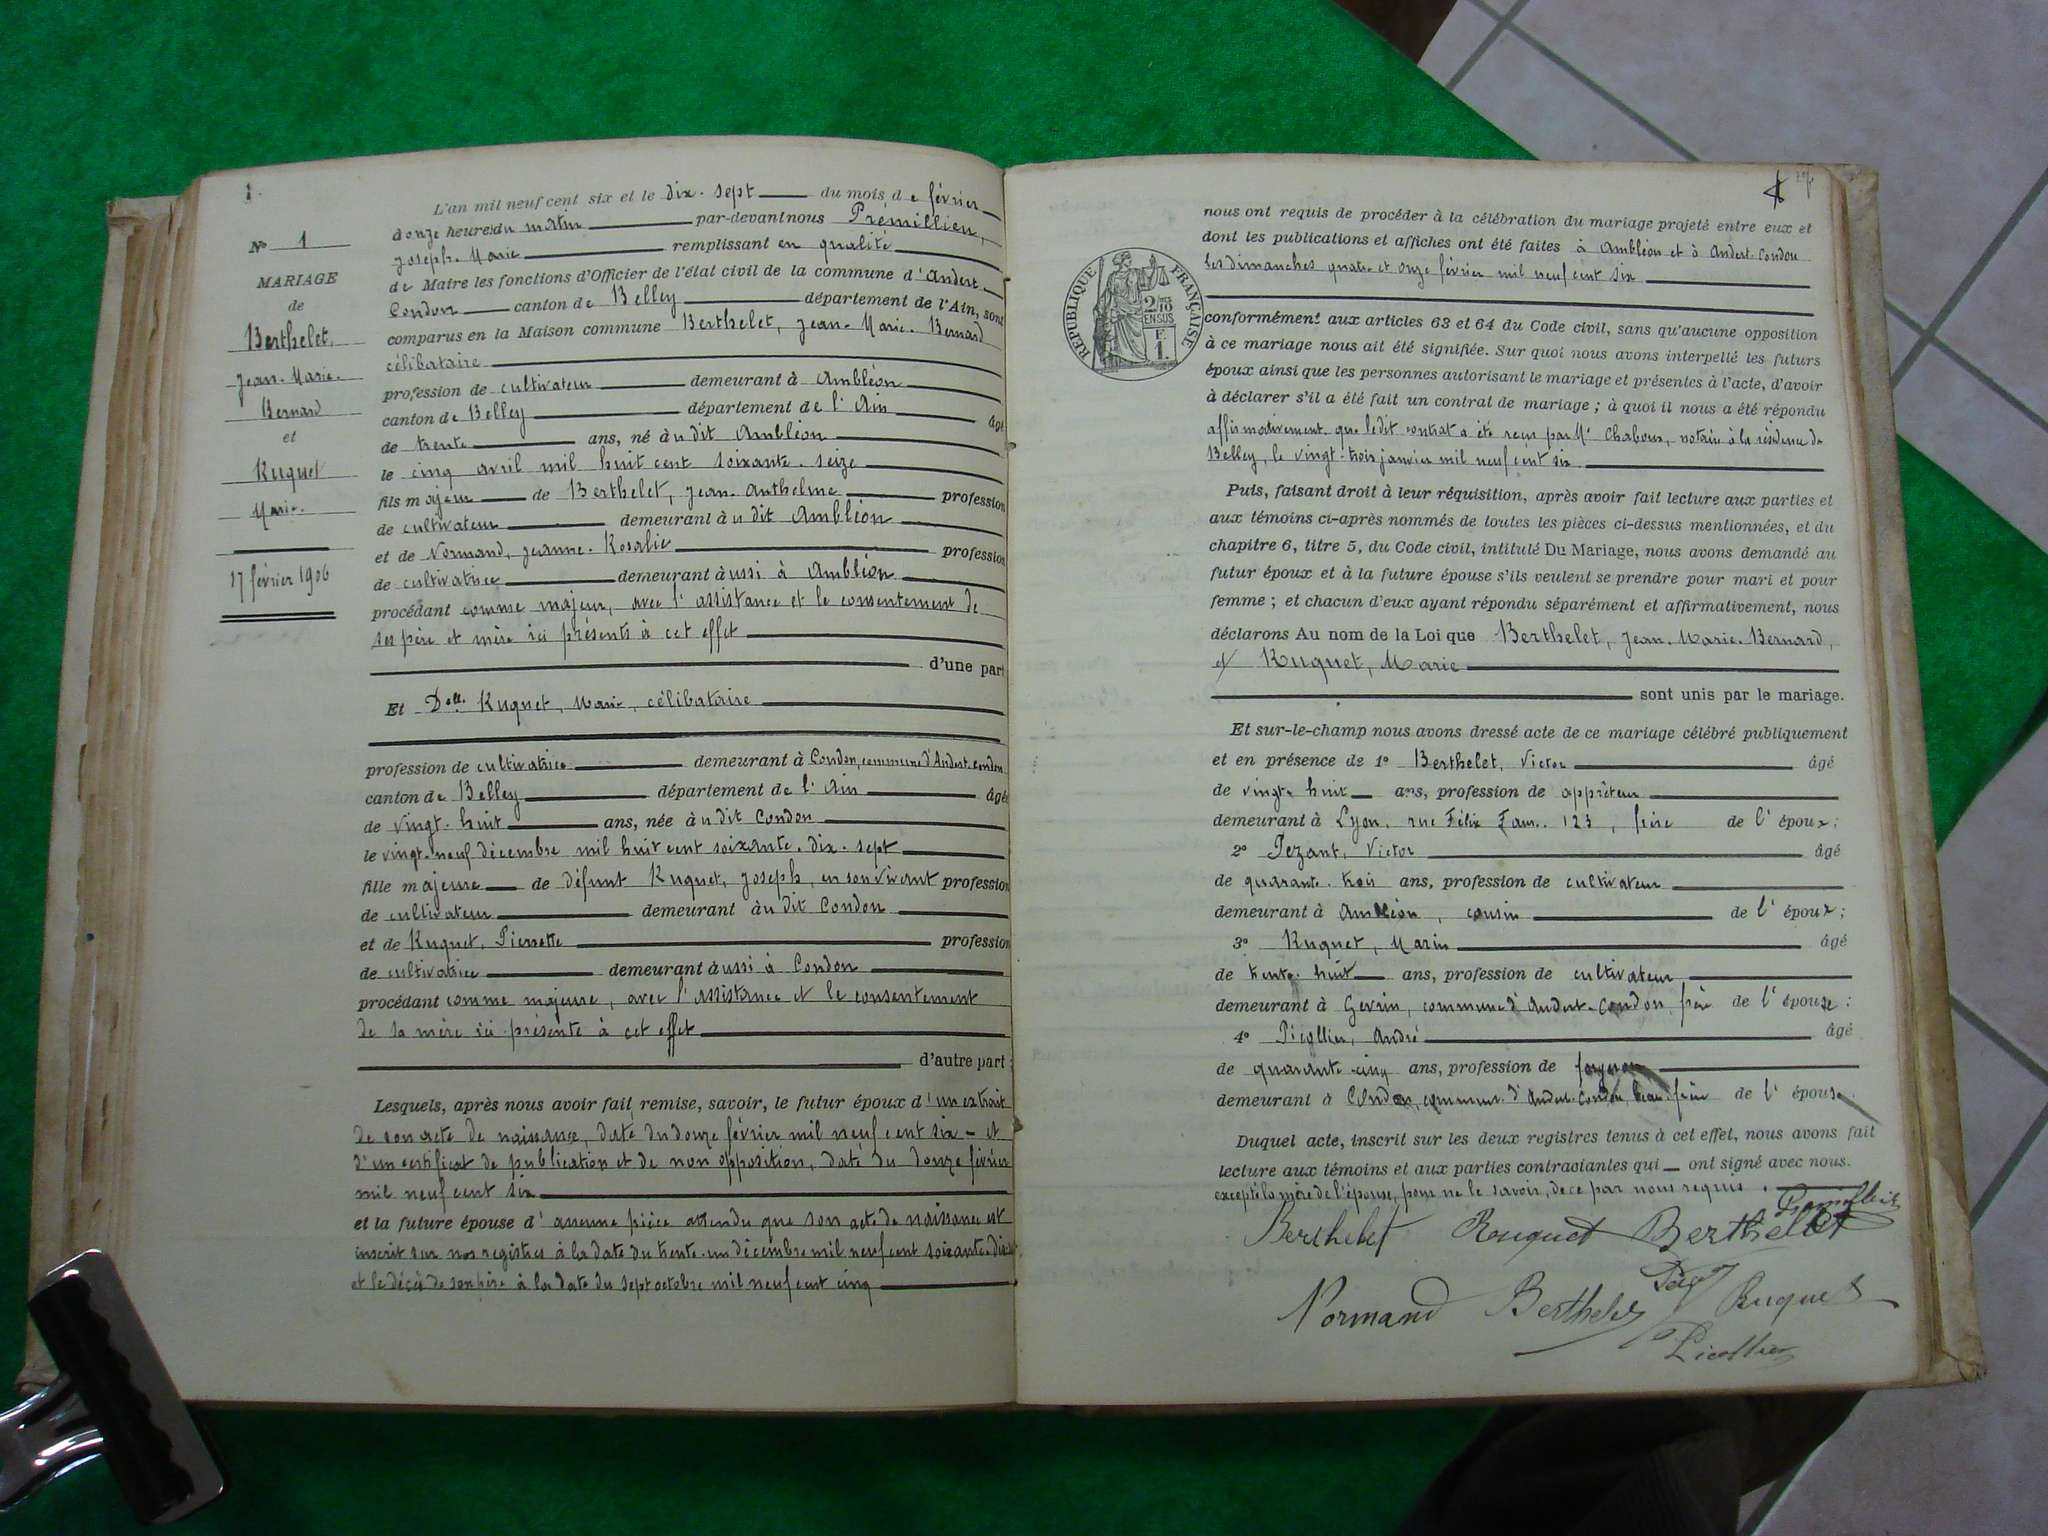 1
L'an mil neuf cent six et le dix-sept du mois de février
onze heures du matin par-devant nous Prémillieu,
Joseph-Marie remplissant en qualité
de Maire les fonctions d'Officier de l'état civil de la commune d'Andert-
Condon canton de Belley département de l'Ain, sont
comparus en la Maison commune Berthelet, Jean-Marie-Bernard
célibataire
profession de cultivateur demeurant à Ambléon
canton de Belley département de l'Ain âgé
de trente ans, né àudit Ambléon
le cinq avril mil huit cent soixante-seize
fils majeur de Berthelet, Jean-Anthelme profession
de cultivateur demeurant àudit Ambléon
et de Normand, Jeanne-Rosalie profession
de cultivatrice demeurant aussi à Ambléon
procédant comme majeur, avec l'assistance et le consentement de
ses père et mère ici présents à cet effet
d'une part
Et Delle Ruquet, Marie, célibataire
profession de cultivatrice demeurant à Condon, commune d'Andert-Condon
canton de Belley département de l'Ain âgée
de vingt-huit ans, née àudit Condon
le vingt-neuf décembre mil huit cent soixante-dix-sept
fille majeure de défunt Ruquet, Joseph, en son vivant profession
de cultivateur demeurant àudit Condon
et de Ruquet, Pierrette profession
de cultivatrice demeurant aussi à Condon
procédant comme majeure, avec l'assistance et le consentement
de sa mère ici présente à cet effet
d'autre part ;
Lesquels, après nous avoir fait remise, savoir, le futur époux d'un extrait
de son acte de naissance, daté du douze février mil neuf cent six - et
d'un certificat de publication et de non opposition, daté du douze février
mil neuf cent six
et la future épouse d'aucune pièce attendu que son acte de naissance est
inscrit sur nos registres à la date du trente-un décembre mil neuf cent soixante-dix-sept
et le décès de son père à la date du sept octobre mil neuf cent cinq
No 1
MARIAGE
de
Berthelet,
Jean-Marie-
Bernard
et
Ruquet
Marie.
17 février 1906
nous ont requis de procéder à la célébration du mariage projeté entre eux et
dont les publications et affiches ont été faites à Ambléon et à Andert-Condon
les dimanches quatre et onze février mil neuf cent six
conformément aux articles 63 et 64 du Code civil, sans qu'aucune opposition
à ce mariage nous ait été signifiée. Sur quoi nous avons interpellé les futurs
époux ainsi que les personnes autorisant le mariage et présentes à l'acte, d'avoir
à déclarer s'il a été fait un contrat de mariage ; à quoi il nous a été répondu
affirmativement que ledit contrat a été reçu par Me Chaboux, notaire à la résidence de
Belley, le vingt-trois janvier mil neuf cent six
Puis, faisant droit à leur réquisition, après avoir fait lecture aux parties et
aux témoins ci-après nommés de toutes les pièces ci-dessus mentionnées, et du
chapitre 6, titre 5, du Code civil, intitulé Du Mariage, nous avons demandé au
futur époux et à la future épouse s'ils veulent se prendre pour mari et pour
femme ; et chacun d'eux ayant répondu séparément et affirmativement, nous
déclarons Au nom de la Loi que Berthelet, Jean-Marie-Bernard,
et Ruquet, Marie
sont unis par le mariage.
Et sur-le-champ nous avons dressé acte de ce mariage célébré publiquement
et en présence de 1° Berthelet, Victor âgé
de vingt-huit ans, profession de apprêteur
demeurant à Lyon, rue Félix Faure 123, frère de l'époux ;
2° Pezant, Victor âgé
de quarante-trois ans, profession de cultivateur
demeurant à Ambléon, cousin de l'époux ;
3° Ruquet, Marin âgé
de trente-huit ans, profession de cultivateur
demeurant à Gevrin, commune d'Andert-Condon, frère de l'épouse ;
4° Picollier, André âgé
de quarante-cinq ans, profession de forgeron
demeurant à Condon, commune d'Andert-Condon, beau-frère de l'épouse
Duquel acte, inscrit sur les deux registres tenus à cet effet, nous avons fait
lecture aux témoins et aux parties contractantes qui ont signé avec nous.
excepté la mère de l'épouse, pour ne le savoir, de ce par nous requis.
Prémillieu
Berthelet Rouquet Berthelet
Normand Berthelet Ruquet
Picollier
RÉPUBLIQUE FRANÇAISE
2/10 EN SUS
F.
1.